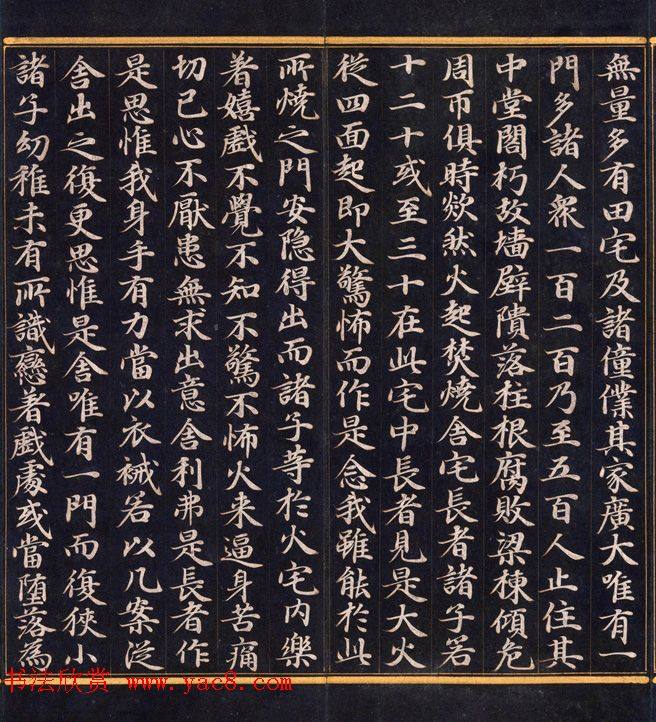 無量多有田宅及諸僮僕其家廣大唯有一
門多諸人眾一百二百乃至五百人止住其
中堂閣朽故墻壁隤落柱根腐敗梁棟傾危
周帀俱時欻然火起焚燒舍宅長者諸子若
十二十或至三十在此宅中長者見是大火
從四面起即大驚怖而作是念我雖能於此
所燒之門安隱得出而諸子等於火宅內樂
著嬉戲不覺不知不驚不怖火来逼身苦痛
切己心不厭患無求出意舍利弗是長者作
是思惟我身手有力當以衣裓若以几案從
舍出之復更思惟是舍唯有一門而復狹小
諸子幼稚未有所識戀著戲處或當墮落為
书法欣赏 www.yac8.com